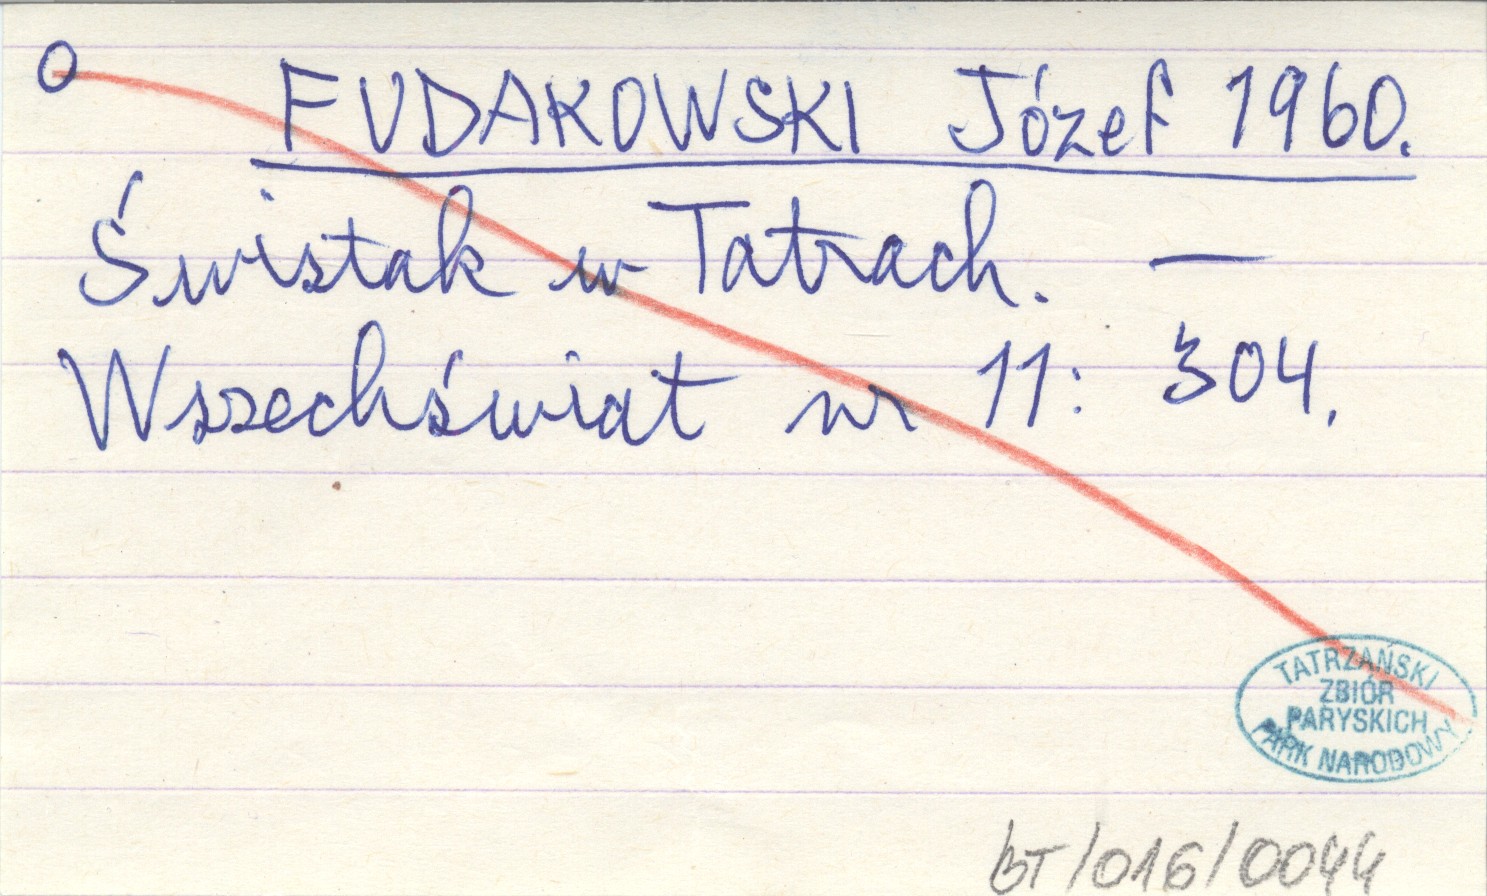 O FUDAKOWSKI Józef 1960.
Świstak w Tatrach. —
Wszechświat nr 11: 304.
TATRZAŃSKI
ZBIÓR
PARYSKICH
PARK NARODOWY
BT/016/0044